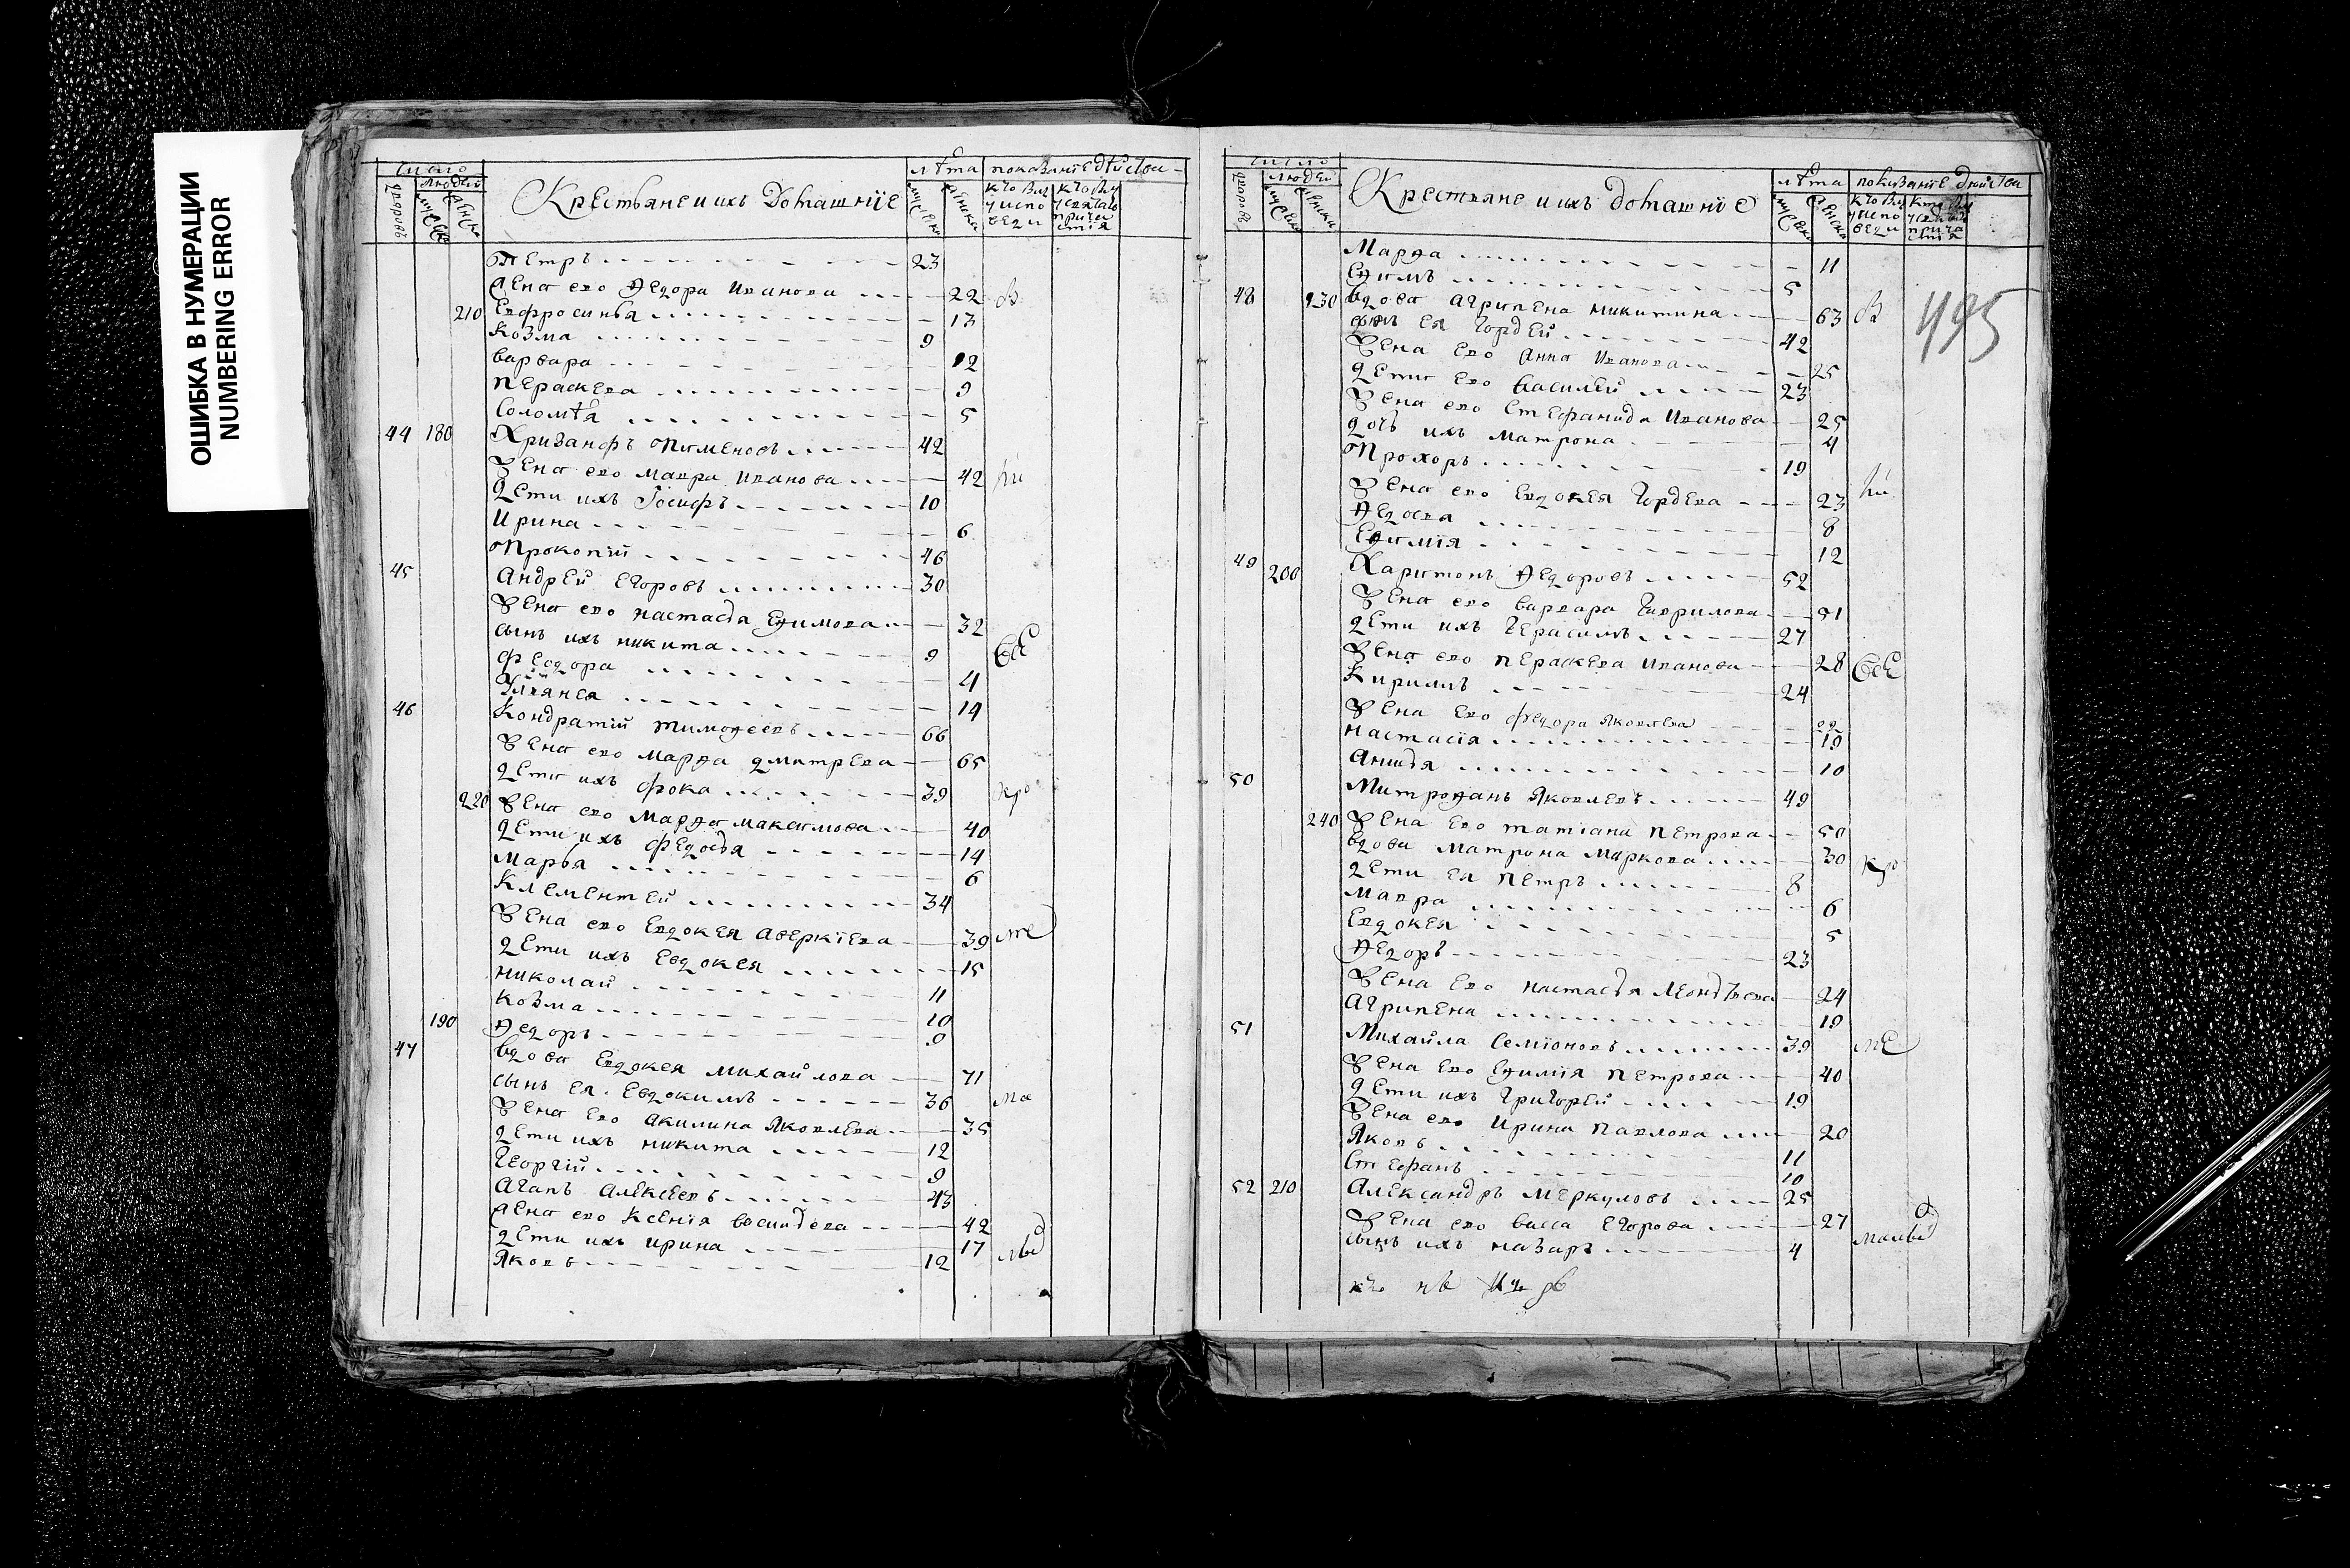 ОШИБКА В НУМЕРАЦИИ
NUMBERING ERROR
число лѣта показаніе дѣйства
дворовъ людей Крестьяне и ихъ домашніе кто был у испо веди кто былъ у святаго причас тія
Петръ 23
жена ево Ѳедора Иванова 22
210 Евфросинья 13
Козма 9
Варвара 12
Пераскева 9
Соломѣя 5
44 180 Хризанфъ Пименовъ 42
Жена ево Мавра Иванова 42
Дети ихъ Іосифъ 10
Ирина 6
Прокопій 46
45 Андрей Егоровъ 30
Жена ево Настасья Еѳимова 32
сынъ ихъ Никита 9
Феодора 4
Ульянея 14
46 Кондратій Тимоѳеевъ 66
Жена ево Марѳа Дмитрева 65
Дети ихъ Фока 39
220 Жена ево Марѳа Максимова 40
Дети ихъ Федосья 14
Марья 6
Клементей 34
Жена ево Евдокея Аверкіева 39
Дети ихъ Евдокея 15
Николай 11
Козма 10
190 Ѳедоръ 9
47 Вдова Евдокея Михайлова 71
сынъ ея Евдокимъ 36
Жена ево Акилина Яковлева 35
Дети ихъ Никита 12
Георгій 9
Агапъ Алексеевъ 43
жена ево Ксенія Васильева 42
Дети ихъ Ирина 17
Яковъ 12
число лѣта показаніе дѣйства
дворовъ людей Крестьяне и ихъ домашніе кто был у испо веди кто был у святаго прича стія
495
Марѳа 11
Еѳимъ 5
48 230 Вдова Агрипена Никитина 63
сынъ ея Гордей 42
Жена ево Анна Иванова 25
Дети ево Василей 23
Жена ево Стефанида Иванова 25
дочь ихъ Матрона 4
Прохоръ 19
Жена ево Евдокея Гордева 23
Ѳедосея 8
Еѳимія 12
49 200 Харитонъ Ѳедоровъ 52
Жена ево Варвара Гаврилова 51
Дети ихъ Герасимъ 27
Жена ево Пераскева Иванова 28
Кирилъ 24
Жена Ево Федора Яковлева 22
Настасія 19
Анисья 10
50 Митроѳанъ Яковлевъ 49
240 Жена Ево Татіана Петрова 50
Вдова Матрона Маркова 30
Дети ея Петръ 8
Мавра 6
Евдокея 5
Ѳедоръ 23
Жена Ево Настасья Леонтьева 24
Агрипена 19
51 Михайла Семіоновъ 39
Жена Ево Еѳимія Петрова 40
Дети ихъ Григорей 19
Жена ево Ирина Павлова 20
Яковъ 11
Стефанъ 10
52 210 Александръ Меркуловъ 25
Жена ево Васса Егорова 27
сынъ ихъ Назаръ 4